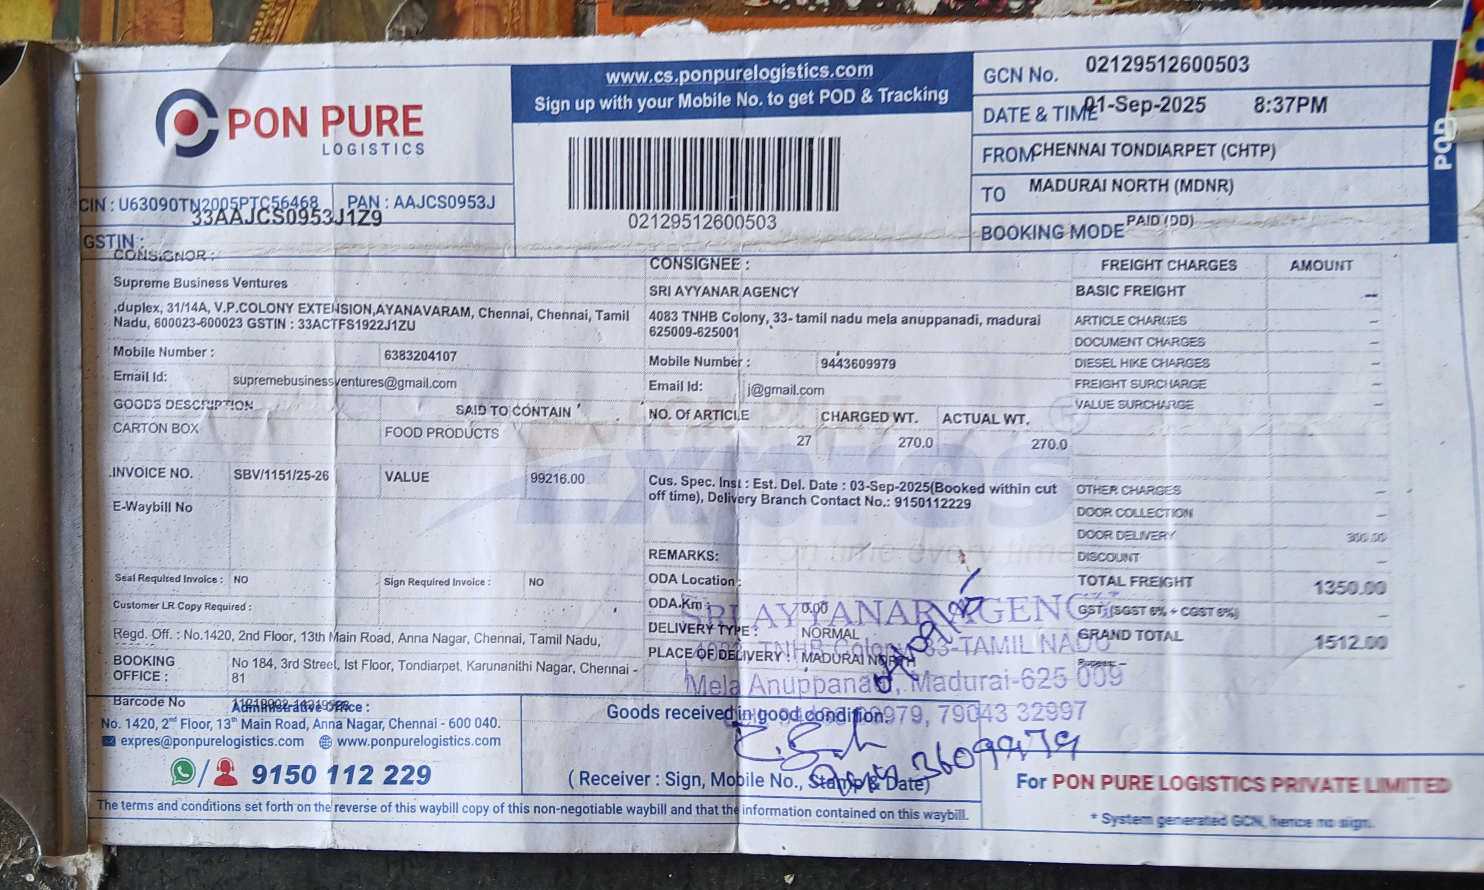 PON PURE
LOGISTICS
www.cs.ponpurelogistics.com
Sign up with your Mobile No. to get POD & Tracking
02129512600503
GCN No. 02129512600503
DATE & TIME 01-Sep-2025 8:37PM
FROM CHENNAI TONDIARPET (CHTP)
TO MADURAI NORTH (MDNR)
BOOKING MODE PAID (DD)
POD
CIN : U63090TN2005PTC56468 PAN : AAJCS0953J
33AAJCS0953J1Z9
GSTIN :
CONSIGNOR :
Supreme Business Ventures
,duplex, 31/14A, V.P.COLONY EXTENSION,AYANAVARAM, Chennai, Chennai, Tamil
Nadu, 600023-600023 GSTIN : 33ACTFS1922J1ZU
Mobile Number : 6383204107
Email Id: supremebusinessventures@gmail.com
GOODS DESCRIPTION SAID TO CONTAIN
CARTON BOX FOOD PRODUCTS
INVOICE NO. SBV/1151/25-26 VALUE 99216.00
E-Waybill No
Seal Required Invoice : NO Sign Required Invoice : NO
Customer LR Copy Required :
Regd. Off. : No.1420, 2nd Floor, 13th Main Road, Anna Nagar, Chennai, Tamil Nadu,
BOOKING OFFICE : No 184, 3rd Street, Ist Floor, Tondiarpet, Karunanithi Nagar, Chennai -
81
Barcode No
CONSIGNEE :
SRI AYYANAR AGENCY
4083 TNHB Colony, 33- tamil nadu mela anuppanadi, madurai
625009-625001
Mobile Number : 9443609979
Email Id: j@gmail.com
NO. Of ARTICLE CHARGED WT. ACTUAL WT.
27 270.0 270.0
Cus. Spec. Inst : Est. Del. Date : 03-Sep-2025(Booked within cut
off time), Delivery Branch Contact No.: 9150112229
expres
On time every time
REMARKS:
ODA Location:
ODA.Km : 0.00
DELIVERY TYPE : NORMAL
PLACE OF DELIVERY : MADURAI NORTH
SRI AYYANAR AGENCY
TNHB Colony 33-TAMIL NADU
Mela Anuppanadi, Madurai-625 009
79043 32997
FREIGHT CHARGES AMOUNT
BASIC FREIGHT --
ARTICLE CHARGES --
DOCUMENT CHARGES --
DIESEL HIKE CHARGES --
FREIGHT SURCHARGE --
VALUE SURCHARGE --
OTHER CHARGES --
DOOR COLLECTION --
DOOR DELIVERY 300.00
DISCOUNT
TOTAL FREIGHT 1350.00
GST: (SGST 6% + CGST 6%) --
GRAND TOTAL 1512.00
Administrative Office :
No. 1420, 2nd Floor, 13th Main Road, Anna Nagar, Chennai - 600 040.
expres@ponpurelogistics.com www.ponpurelogistics.com
9150 112 229
Goods received in good condition.
(Receiver : Sign, Mobile No., Stamp & Date)
For PON PURE LOGISTICS PRIVATE LIMITED
* System generated GCN, hence no sign.
The terms and conditions set forth on the reverse of this waybill copy of this non-negotiable waybill and that the information contained on this waybill.